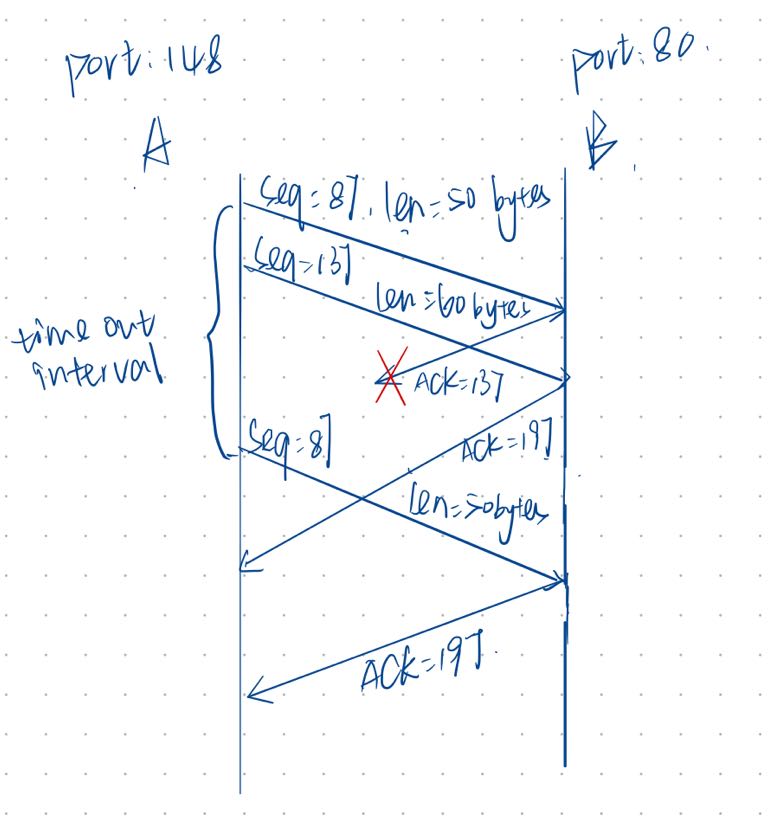 port: 148
port: 80.
A
B
Seq = 87, len = 50 bytes
Seq = 137
len = 60 bytes
time out
interval
ACK = 137
Seq = 87
ACK = 197
len = 50 bytes
ACK = 197.